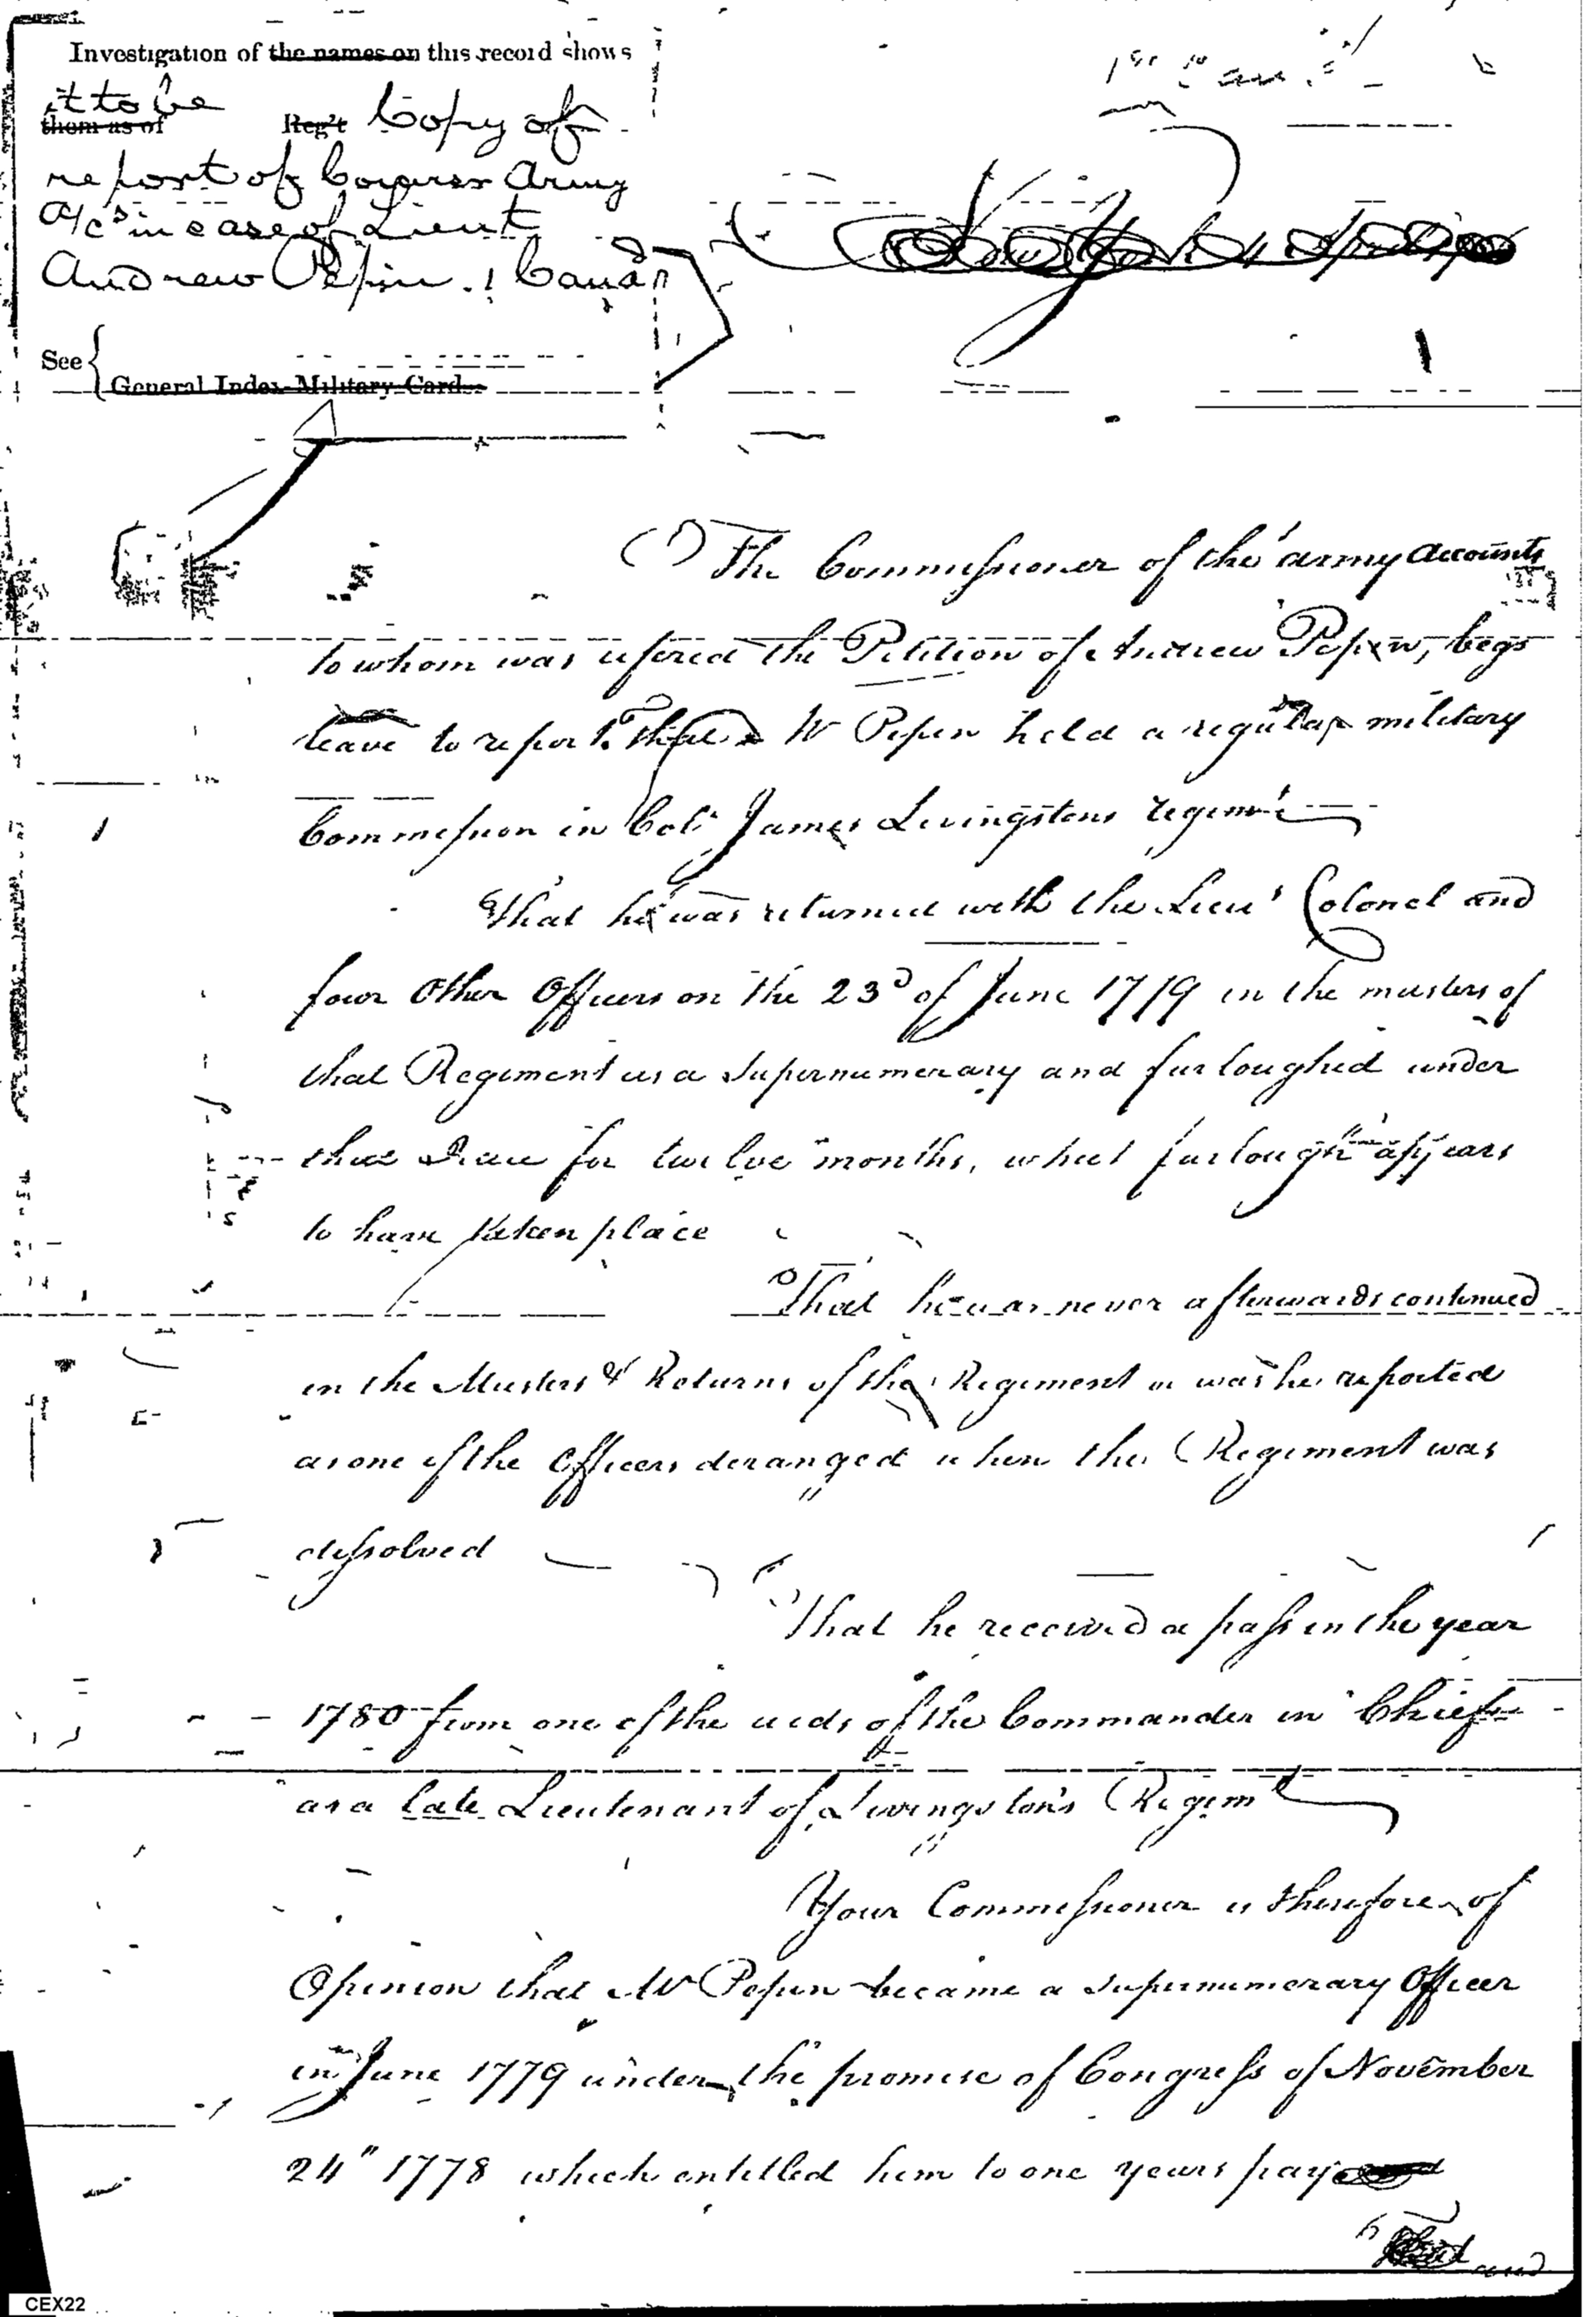 Investigation of the names on this record shows
it to be
them as of Reg't Copy of
report of Comrs Army
a/cs in case of Lieut
Andrew Pepin. 1 Canadn
See
General Index Military Card
The Commissioner of the army accounts
to whom was refered the Petition of Andrew Pepin, begs
leave to report. That Mr Pepin held a regular military
Commission in Col. James Livingstons regimt
That he was returned with the Lieut Colonel and
four Other Officers on the 23d of June 1779 in the musters of
that Regiment as a Supernumerary and furloughed under
that Idea for twelve months, which furlough appears
to have taken place
That he was never afterwards continued
in the Musters & Returns of the Regiment or was he reported
as one of the Officers deranged when the Regiment was
dissolved
That he received a pass in the year
1780 from one of the aids of the Commander in Chief
as a late Lieutenant of Livingston's Regimt
Your Commissioner is therefore of
Opinion that Mr Pepin became a Supernumerary Officer
in June 1779 under the promise of Congress of November
24" 1778 which entitled him to one years pay
and
CEX22